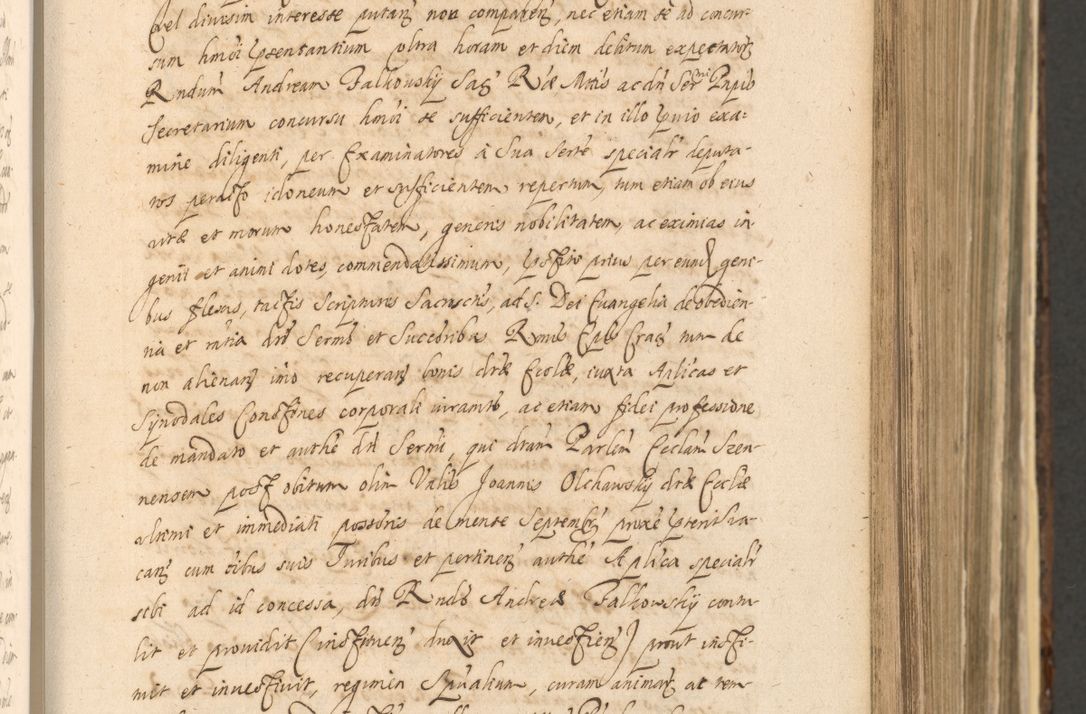 vel divisim interesse putan͂ non comparen͂, nec etiam se ad concur-
sum hmoi p͂sentantium ultra horam et diem debitum expectator͂
Rndum Andream Falkowsky Sac͂ R͂æ Mttis ac dn͂i Sermi Pnpis
Secretarium concursu hmoi se sufficientem, et in illo p͂vio exa:
mine diligenti, per Examinatores à Sua Serte specialr deputa-
tos peracto idoneum et sufficientem repertum, tum etiam ob eius
vitæ et morum honestatem, generis nobilitatem, ac eximias in
genii et animi dotes, commendatissimum, p͂stito prius per eund͂ geni-
bus flexis, tactis Scripturis Sacrosctis, ad S. Dei Evangelia de obedien-
tia et rn͂tia dn͂o Sermo et Succoribus Rmis Epis Crac͂ tum de
non alienan͂ imo recuperan͂ bonis dictæ Ecclæ, iuxta Aplicas et
Synodales Constnes corporali iuramto, ac etiam fidei professione
de mandato et authe dn͂i Sermi, qui dictam Parlem Ecclam Szen-
nensem post obitum olim Vnlis Joannis Olchawsky dictæ Ecclæ
ultimi et immediati possoris de mense Septembr͂ proxe p͂terito va-
can͂ cum oibus suis Juribus et pertinen͂ authe Aplica specialr
sibi ad id concessa, dn͂o Rndo Andreæ Falkowsky contu
lit et providit (instituen͂ duxit et investien͂) prout insti-
tuit et investivit, regimen Spualium, curam animar͂ ac tem-